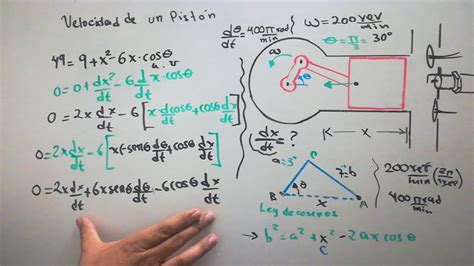 Velocidad de un Pistón
49 = 9 + x² - 6x·cosθ
u.v
0 = 0 + dx²/dt - 6 d/dt x·cosθ
0 = 2x dx/dt - 6 [x·dcosθ/dt + cosθ dx/dt]
0 = 2x dx/dt - 6 [x(-senθ dθ/dt + cosθ dx/dt]
0 = 2x dx/dt + 6x senθ dθ/dt - 6cosθ dx/dt
dθ/dt = 400π rad/min
ω = 200 rev/min
θ = π/3 = 30°
ω
θ
x
dx/dt = ?
a = 3"
C
7 = b
B
θ
A
x
Ley de cosenos
b² = a² + x² - 2ax cosθ
C
200 rev/min (2π/rev)
400π rad/min